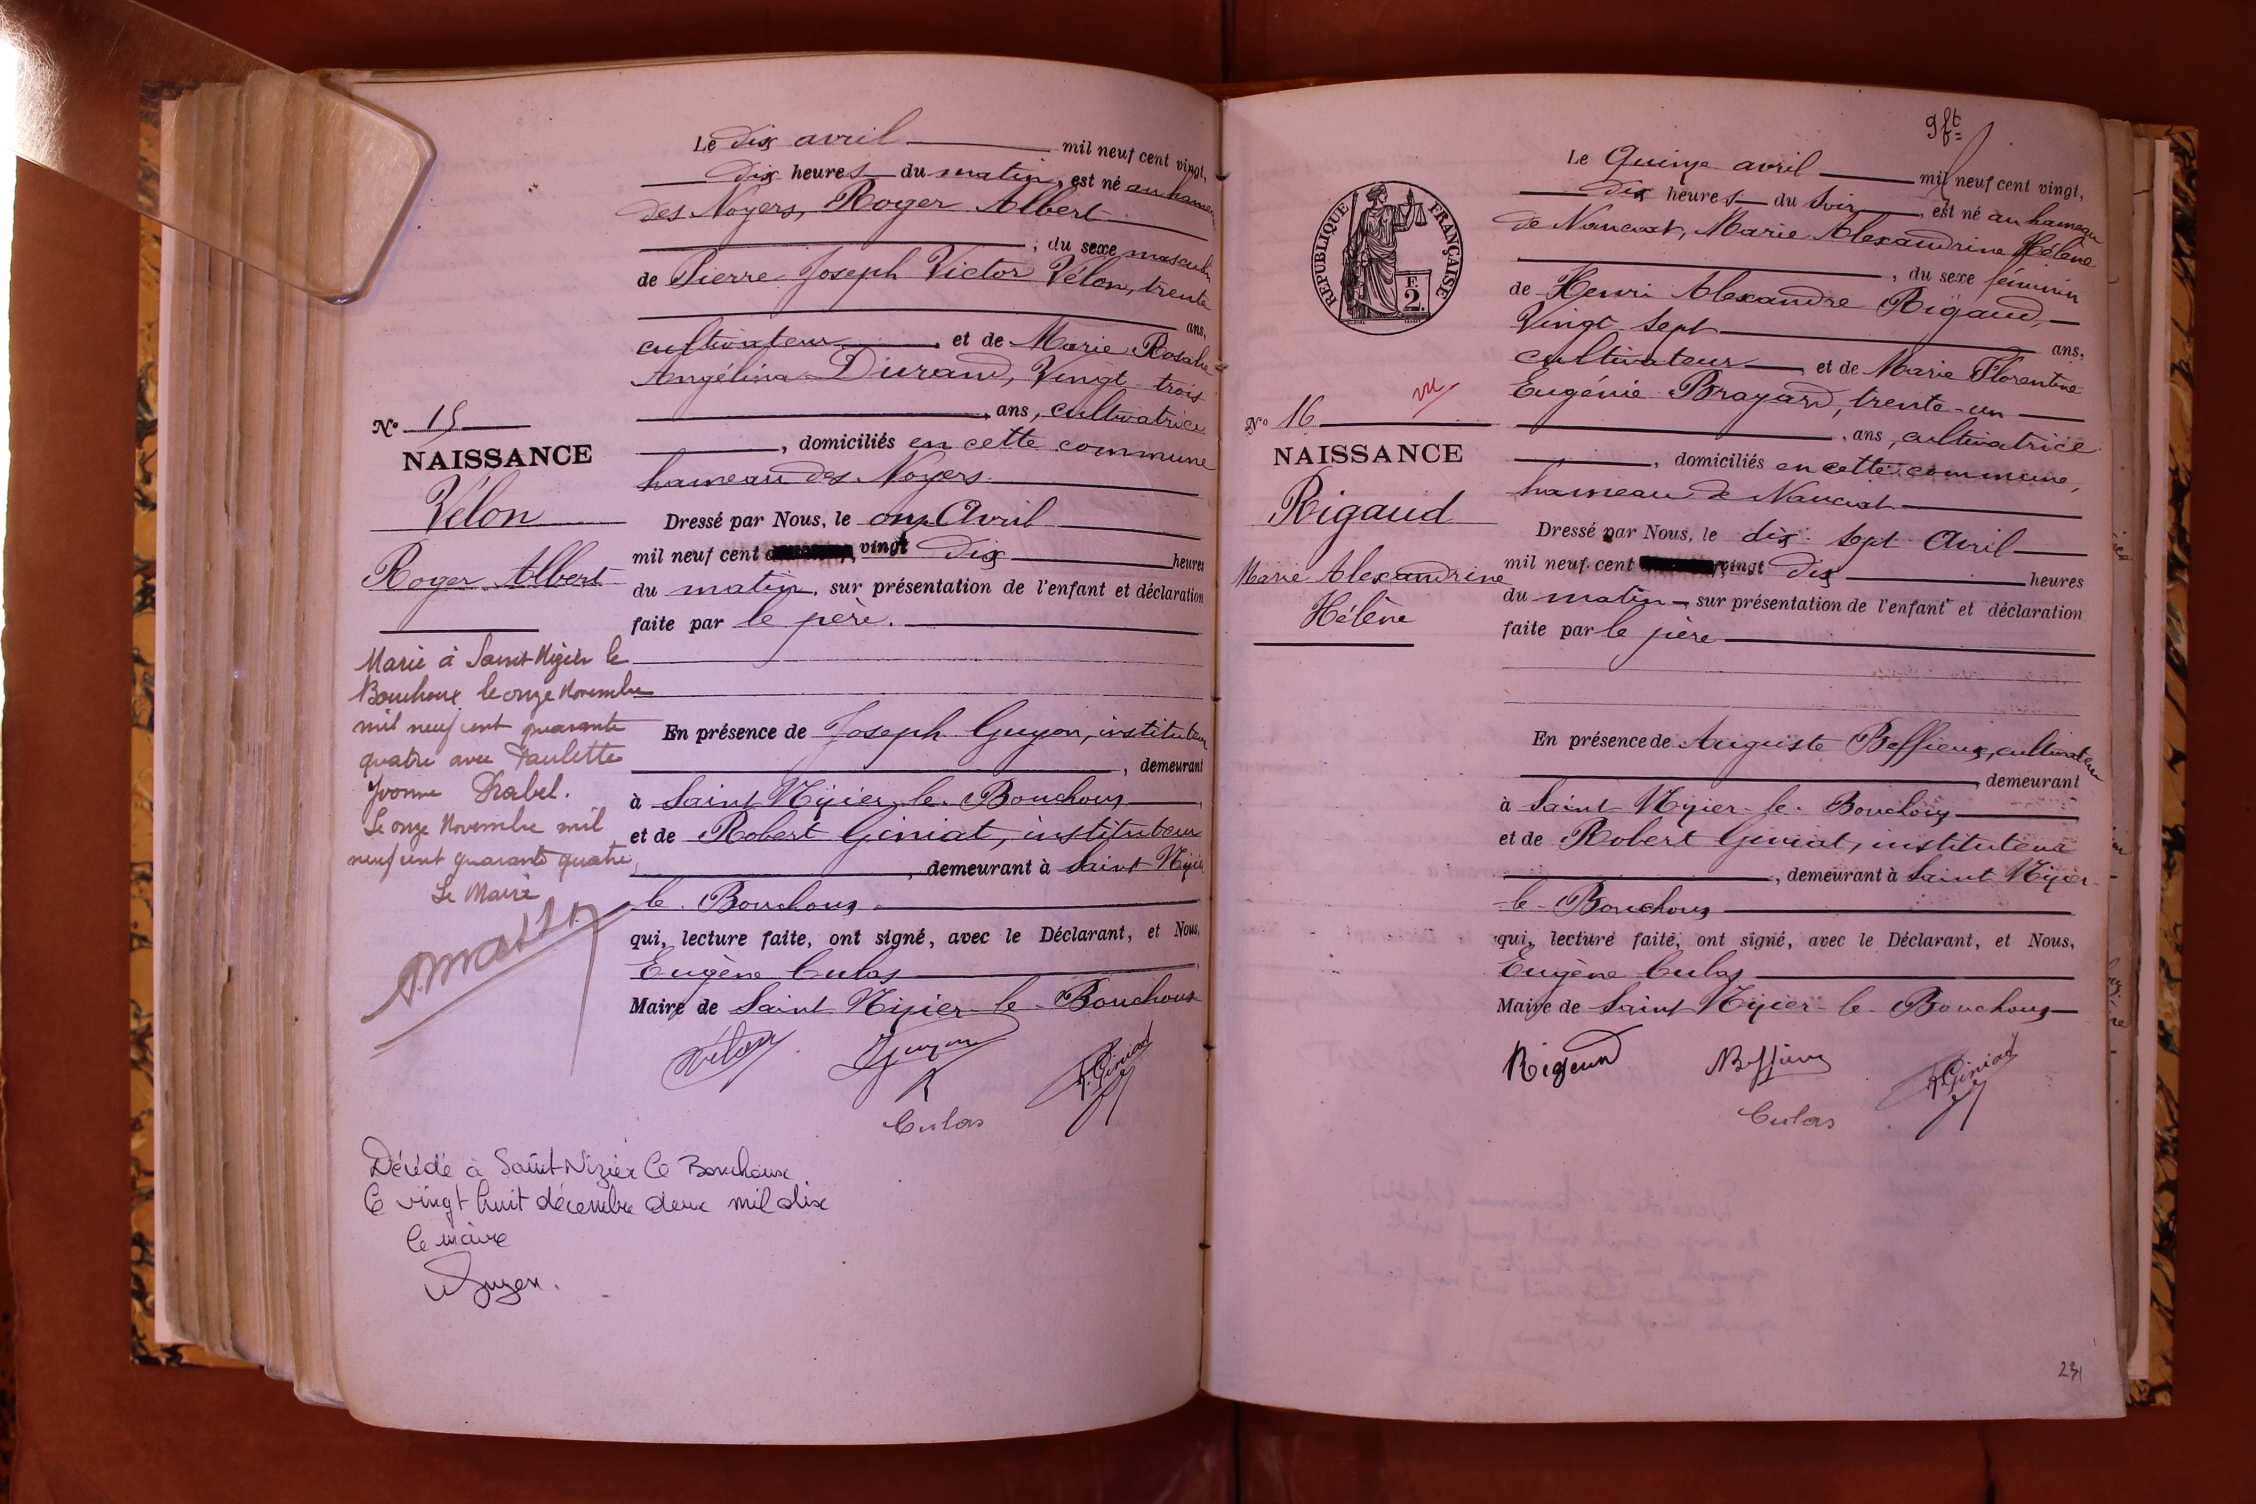 Le dix avril mil neuf cent vingt,
dix heures du matin, est né au hameau
des Noyers, Roger Albert
, du sexe masculin
de Pierre Joseph Victor Vélon, trente
ans,
cultivateur, et de Marie Rosalie
Angélina Durand, Vingt-trois
ans, cultivatrice
, domiciliés en cette commune
hameau des Noyers.
Dressé par Nous, le onze Avril
mil neuf cent vingt dix heures
du matin, sur présentation de l'enfant et déclaration
faite par le père.
En présence de Joseph Guyon, instituteur
, demeurant
à Saint Nizier-le-Bouchoux,
et de Robert Giniat, instituteur
, demeurant à Saint Nizier
le Bouchoux
qui, lecture faite, ont signé, avec le Déclarant, et Nous,
Eugène Culas,
Maire de Saint Nizier-le-Bouchoux
Vélon Guyon R. Giniat
Culas
N° 15
NAISSANCE
Vélon
Roger Albert
Marié à Saint-Nizier le
Bouchoux le onze Novembre
mil neuf cent quarante
quatre avec Paulette
Yvonne
Le onze Novembre mil
neuf cent quarante quatre,
Le Maire
Décédé à Saint-Nizier le Bouchoux
le vingt huit décembre deux mil dix
le maire
9 ft
Le Quinze avril mil neuf cent vingt,
dix heures du soir, est né au hameau
de Nancuat, Marie Alexandrine Hélène
, du sexe féminin
de Henri Alexandre Rigaud,
Vingt-sept ans,
cultivateur, et de Marie Florentine
Eugénie Brayard, trente-un
, ans, cultivatrice
, domiciliés en cette commune,
hameau de Nancuat
Dressé par Nous, le dix-sept Avril
mil neuf cent vingt dix heures
du matin, sur présentation de l'enfant et déclaration
faite par le père
En présence de Auguste Beffieux, cultivateur
, demeurant
à Saint Nizier-le-Bouchoux
et de Robert Giniat, instituteur
, demeurant à Saint Nizier-
le-Bouchoux
qui, lecture faite, ont signé, avec le Déclarant, et Nous,
Eugène Culas
Maire de Saint Nizier-le-Bouchoux
Rigaud Beffieux R. Giniat
Culas
RÉPUBLIQUE FRANÇAISE
F.
2.
vu
N° 16
NAISSANCE
Rigaud
Marie Alexandrine
Hélène
231